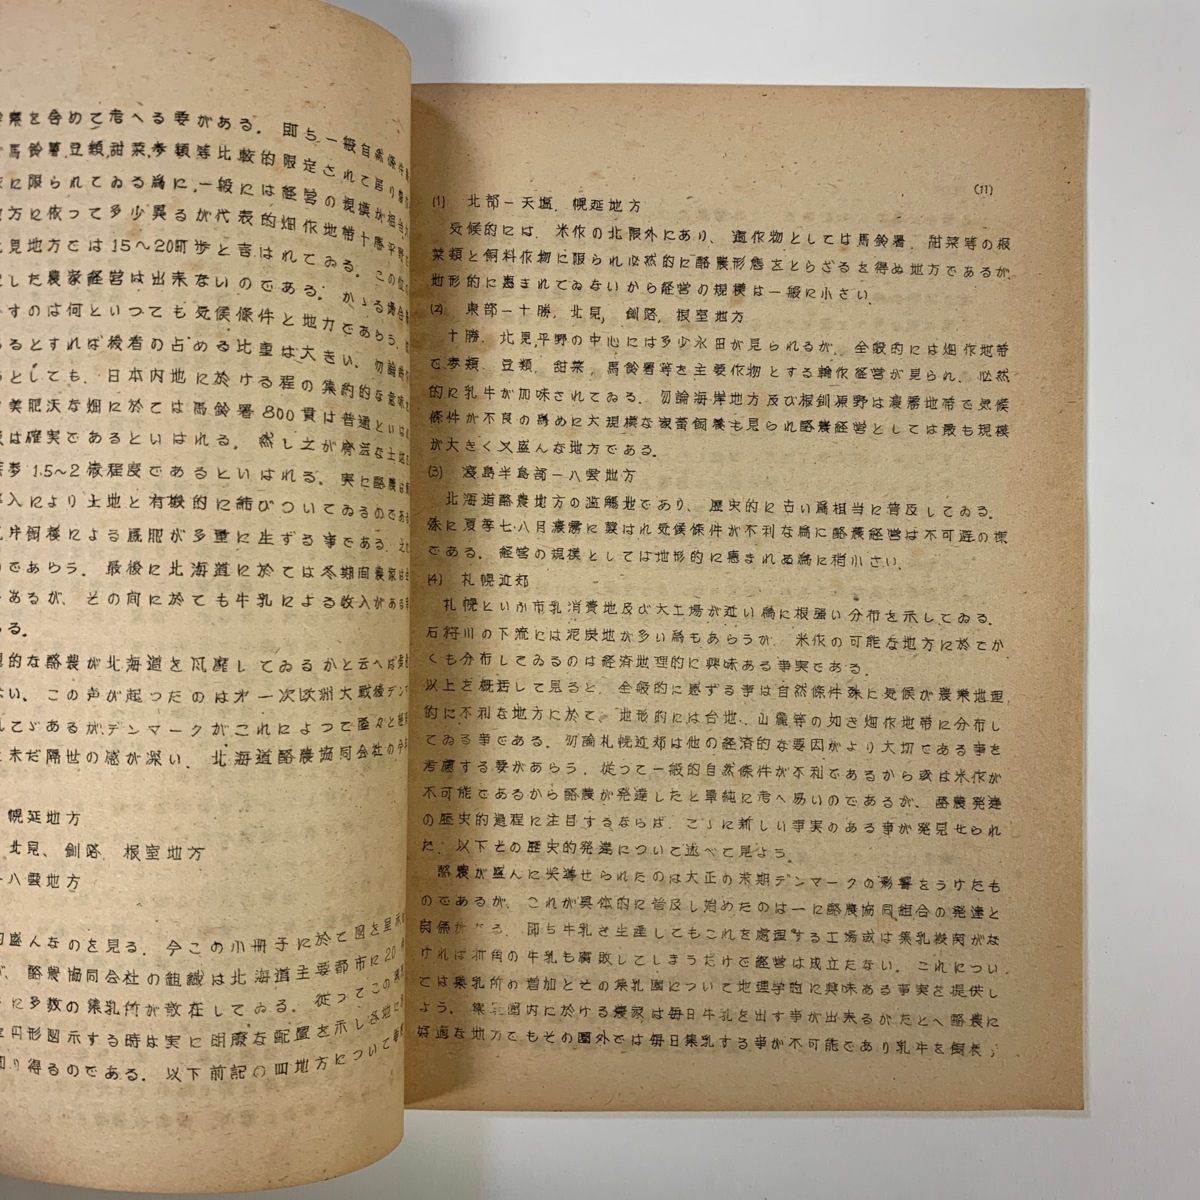 業を含めて考へる要がある。即ち一般自然條件
馬鈴薯,豆類,甜菜,麥類等比較的限定されて居り
に限られてゐる為に,一般には経営の規模が相当
方に依って多少異るが代表的畑作地帶十勝平野
見地方では15〜20町歩と言はれてゐる。この位
した農家経営は出来ないのである。かゝる場合
すのは何といっても気候條件と地力であらう。
るとすれば後者の占める比重は大きい。勿論
としても、日本内地に於ける程の集約的な意味
美肥沃な畑に於ては馬鈴薯800貫は普通といは
は確実であるといはれる。然し之が瘠薄な土地
麥1.5〜2俵程度であるといはれる。実に酪農は
入により土地と有機的に結びついてゐるのである
牛飼様による厩肥が多量に生ずる事である。
であらう。最後に北海道に於ては冬期間農家は
あるが、その向に於ても牛乳による収入がある
る。
的な酪農が北海道を風靡してゐるかと云へば
ない。この声が起ったのは才一次欧州大戰後デン
てゞあるが、デンマークがこれによって隆々と
未だ隔世の感が深い。北海道酪農協同会社の今
幌延地方
北見、釧路、根室地方
八雲地方
盛んなのを見る。今この小冊子に於て図を呈示
が、酪農協同会社の組織は北海道主要都市に20
に多数の集乳所が散在してゐる。従ってこの
円形図示する時は実に明瞭な配置を示し各地に
知り得るのである。以下前記の四地方について
(11)
(1) 北部—天塩、幌延地方
気候的には、米作の北限外にあり、適作物としては馬鈴薯、甜菜等の根
菜類と飼料作物に限られ必然的に酪農形態をとらざるを得ぬ地方であるが、
地形的に惠まれてゐないから経営の規模は一般に小さい。
(2) 東部—十勝、北見、釧路、根室地方
十勝、北見平野の中心には多少水田が見られるが、全般的には畑作地帶
で麥類、豆類、甜菜、馬鈴薯等を主要作物とする輪作経営が見られ、必然
的に乳牛が加味されてゐる。勿論海岸地方及び根釧原野は濃霧地帶で気候
條件が不良の為めに大規模な家畜飼養も見られ酪農経営としては最も規模
が大きく又盛んな地方である。
(3) 渡島半島部—八雲地方
北海道酪農地方の濫觴地であり、歴史的に古い為相当に普及してゐる。
殊に夏季七・八月濃霧に襲はれ気候條件が不利な為に酪農経営は不可避の様
である。経営の規模としては地形的に惠まれぬ為に稍小さい。
(4) 札幌近郊
札幌といふ市乳消費地及び大工場が近い為に根強い分布を示してゐる。
石狩川の下流には泥炭地が多い為もあらうが、米作の可能な地方に於てか
くも分布してゐるのは経済地理的に興味ある事実である。
以上を概括して見ると、全般的に感ずる事は自然條件殊に気候が農業地理
的に不利な地方に於て、地形的には台地、山麓等の如き畑作地帶に分布し
てゐる事である。勿論札幌近郊は他の経済的な要因がより大切である事を
考慮する要があらう。従って一般的自然條件が不利であるから或は米作が
不可能であるから酪農が発達したと單純に考へ易いのであるが、酪農発達
の歴史的過程に注目するならば、こゝに新しい事実のある事が発見せられ
た。以下その歴史的発達について述べて見よう。
酪農が盛んに唱導せられたのは大正の末期デンマークの影響をうけたも
のであるが、これが具体的に普及し始めたのは一に酪農協同組合の発達と
関係がある。即ち牛乳を生産してもこれを處理する工場或は集乳機関がな
ければ折角の牛乳も腐敗してしまうだけで経営は成立たない。これについ
ては集乳所の増加とその集乳圏について地理学的に興味ある事実を提供し
よう。集乳圏内に於ける農家は毎日牛乳を出す事が出来るがたとへ酪農に
好適な地方でもその圏外では毎日集乳する事が不可能であり乳牛を飼養